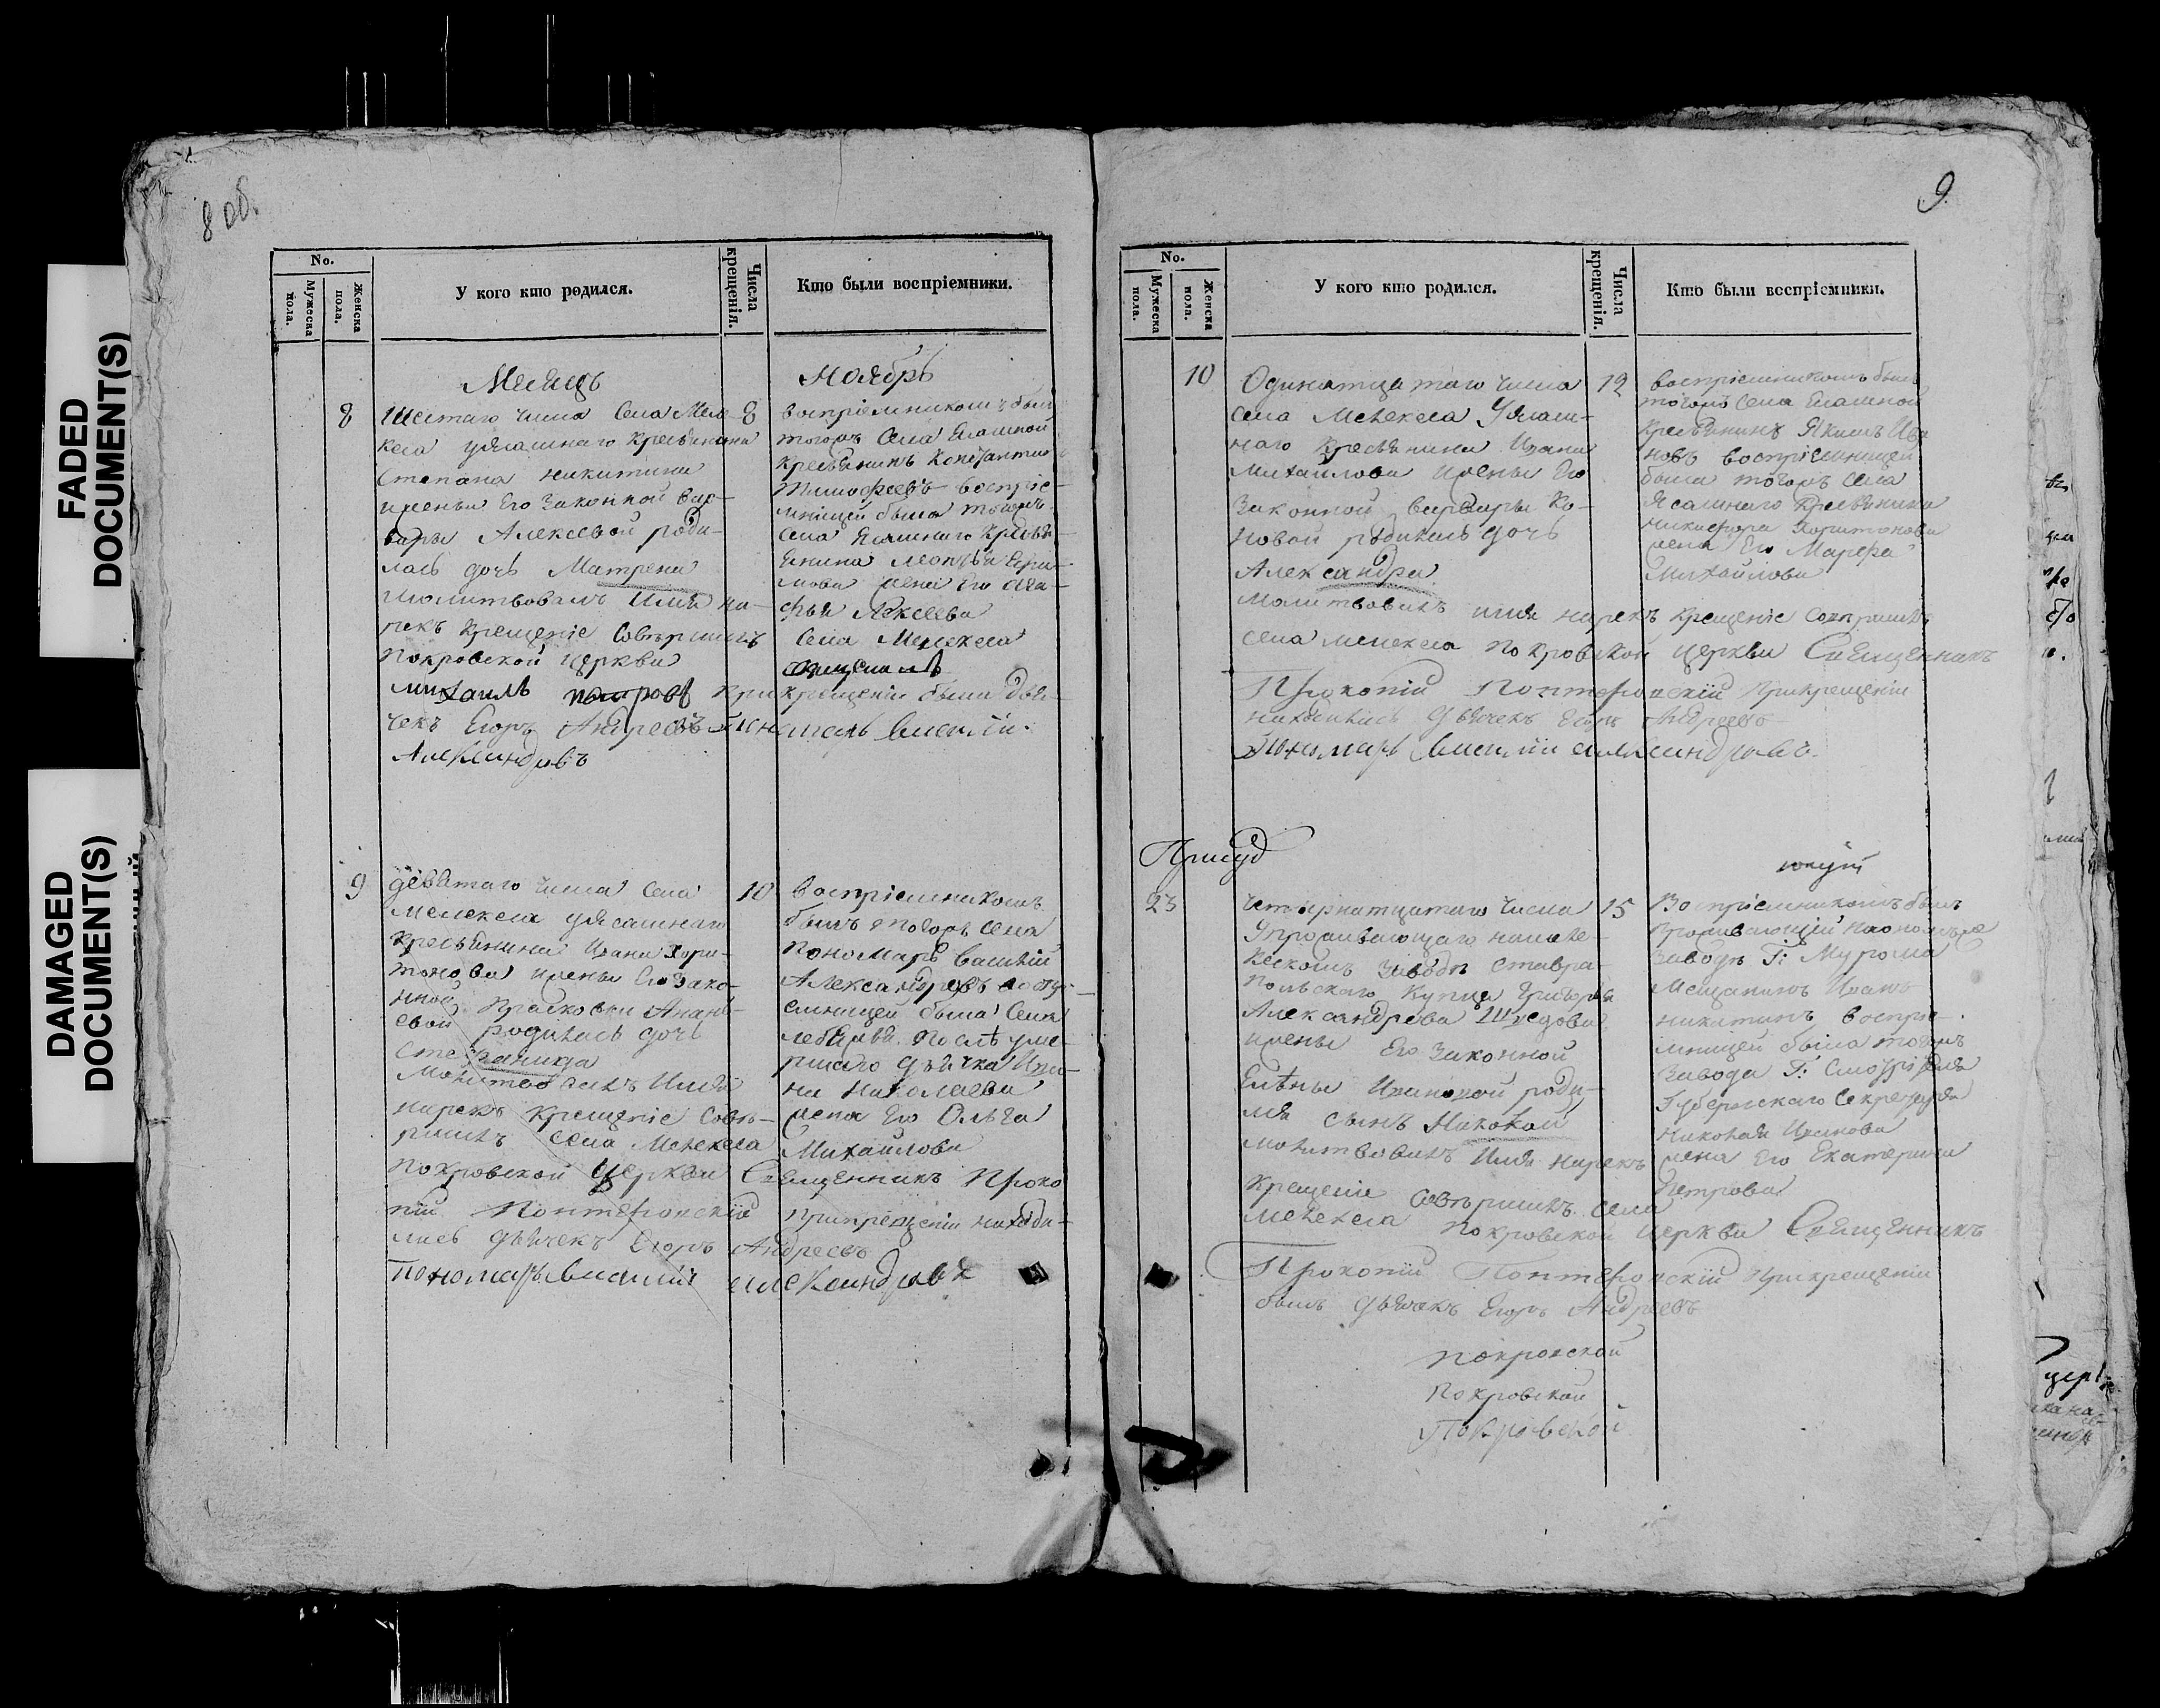 FADED
DOCUMENT(S)
DAMAGED
DOCUMENT(S)
8 об.
No.
Мужеска пола.
Женска пола.
У кого кто родился.
Числа крещенія.
Кто были воспріемники.
Месяцъ
8
Шестаго числа Села Меле-
кеса у ясашнаго кресьянина
Степана никитина
жены Его Законной вар-
вары Алексевой роди-
лась дочь Матрена
молитвовалъ Имя на-
рекъ крещеніе Совершилъ
Покровской церкви
михаилъ
чекъ Егоръ Андреевъ
Александровъ
8
Ноябрь
воспріемникомъ былъ
тогожъ Села Ясашной
кресьянинъ Константинъ
Тимофеевъ воспріе-
мницей была тогожъ
села Ясашнаго кресья-
жена Его Ага-
фья Лексеева
Села Мелекеса
крещеніи были дья-
Василій
9
девятаго числа Села
Мелекеса у ясашнаго
кресьянина Ивана Хари-
тонова жены Его зако-
нной Прасковьи Анань-
евой родилась дочь
Степанида
Молитвовалъ Имя
нарекъ Крещеніе Сове-
ршилъ села Мелекеса
Покровской Церкви Священникъ Проко
пій прикрещеніи находи-
лись дьячекъ Егоръ Андреевъ
Пономарь Василий Александровъ
10
воспріемникомъ
былъ тогожъ села
пономарь василій
Александровъ воспрі-
емницей была Села
после уме-
ршаго дьячка Ива-
на Николаева
жена Его Ольга
Михайлова
9.
No.
Мужеска пола.
Женска пола.
У кого кто родился.
Числа крещенія.
Кто были воспріемники.
10
Одинатцатаго числа
села Мелекеса У ясаш-
наго кресьянина Ивана
Михайлова жены Его
Законной варвары Ко-
новой родилась дочь
Александра
молитвовалъ имя нарекъ крещеніе совершилъ
села мелекеса покровской церкви Священникъ
Прокопій прикрещеніи
находились дьячекъ Егоръ Андреевъ
Пономарь Василий Александровъ.
12
воспріемникомъ былъ
тогожъ села Ясашной
кресьянинъ Якимъ Ива
новъ воспріемницей
была тогожъ села
Ясашнаго кресьянина
никифора Харитонова
жена Его Марфа
Михайлова
23
Четырнатцатаго числа
У проживающаго на меле-
кескомъ Заводе ставра-
польскаго купца Григорья
Александрова Шведова
жены Его Законной
Елены Ивановой роди-
ля сынъ Николай
молитвовалъ Имя нарекъ
крещеніе совершилъ села
мелекеса Покровской церкви Священникъ
Прокопій прикрещеніи
былъ дьячекъ Егоръ Андреевъ
15
Воспріемникомъ былъ
заводе Г: Мурома
Мещанинъ Иванъ
никитинъ воспріе-
мницей была тогожъ
завода Г:
Губернскаго Секретаря
Николая Иванова
жена Его Екатерина
Петрова
покровской
покровской
Покровской